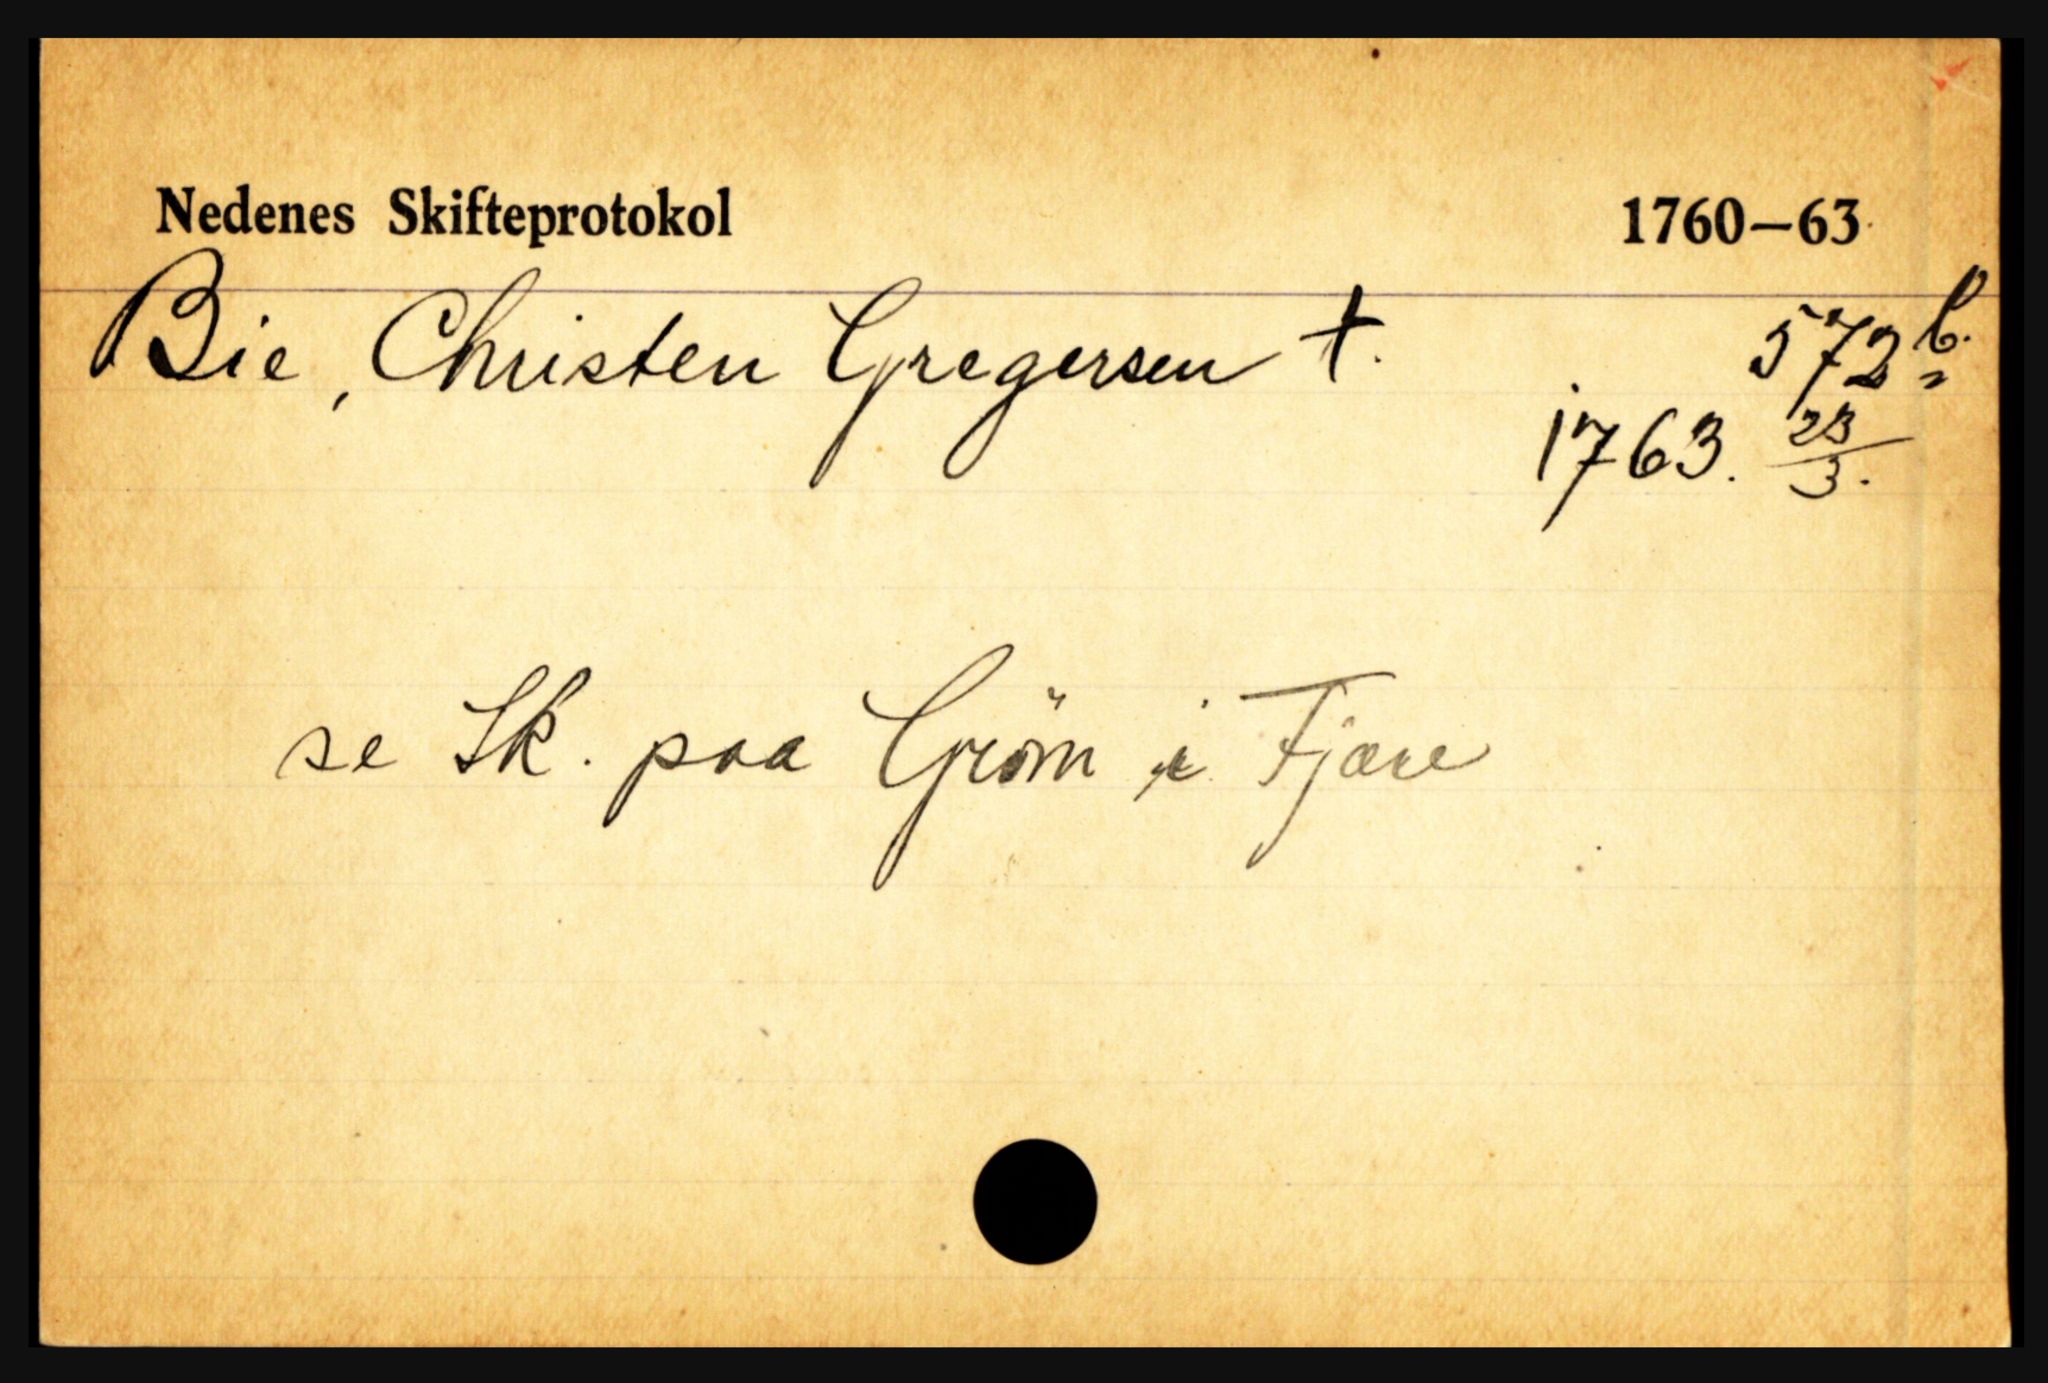 Nedenes Skifteprotokol 1760–63
Bie, Christen Gregersen †. 572 b.
1763. 23/3.
se Sk. paa Gröm i Fjære